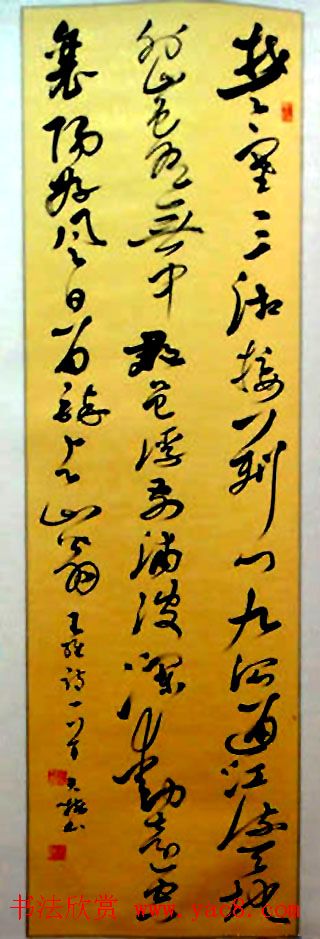 楚塞三湘接荆门九派通江流天地
外山色有無中郡邑浮前浦波澜动远空
襄阳好风日留醉与山翁 王维诗一首 书
书法欣赏 www.yac8.com